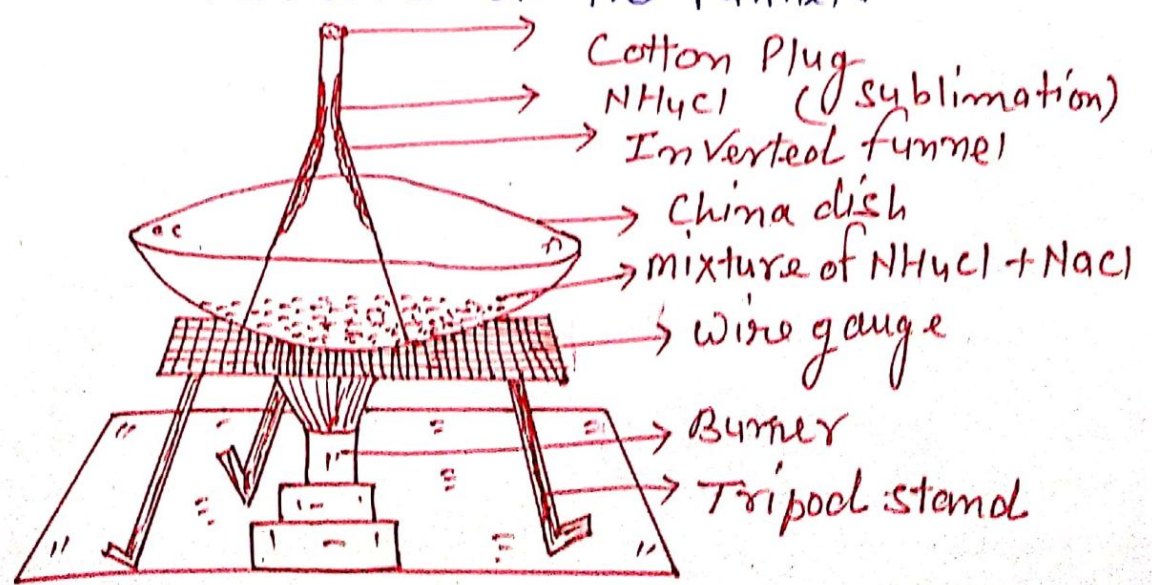 Cotton Plug
NH4Cl (sublimation)
Inverted funnel
China dish
mixture of NH4Cl + NaCl
wire gauge
Burner
Tripod stand